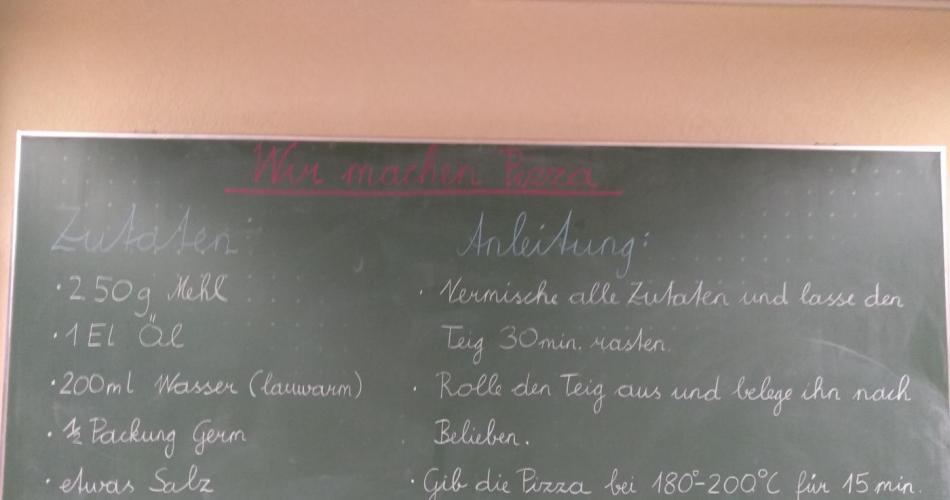 Wir machen Pizza
Zutaten:
· 250g Mehl
· 1 El Öl
· 200ml Wasser (lauwarm)
· ½ Packung Germ
· etwas Salz
Anleitung:
· Vermische alle Zutaten und lasse den
Teig 30min. rasten.
· Rolle den Teig aus und belege ihn nach
Belieben.
· Gib die Pizza bei 180°-200°C für 15 min.